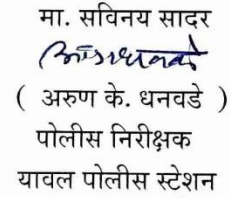 मा. सविनय सादर
( अरुण के. धनवडे )
पोलीस निरीक्षक
यावल पोलीस स्टेशन